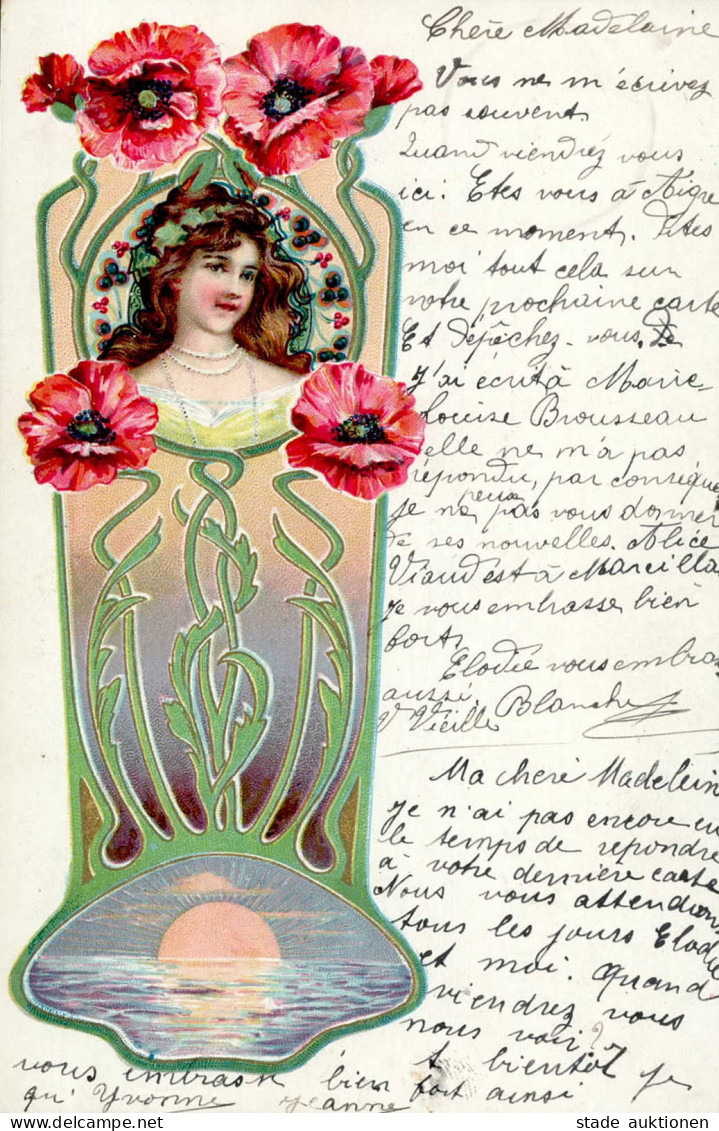 Chère Madelaine
Vous ne m'écrivez
pas souvent
Quand viendrez vous
ici. Etes vous à Aigre
en ce moment. Dites
moi tout cela sur
votre prochaine carte
Et dépêchez-vous.
J'ai écrit à Marie-
Louise Brousseau
elle ne m'a pas
répondu, par conséque
je ne peux pas vous donner
de ses nouvelles. Alice
Viaud est à Marcilla
Je vous embrasse bien
fort,
Elodie vous embras
aussi. Blanche
V Vieille
Ma chere Madelein
Je n'ai pas encore eu
le temps de repondre
à votre dernière carte
Nous vous attendons
tous les jours Elodie
et moi. Quand
viendrez vous
nous voir?
A bientôt je
vous embrass bien fort ainsi
qu' Yvonne Jeanne
stade auktionen